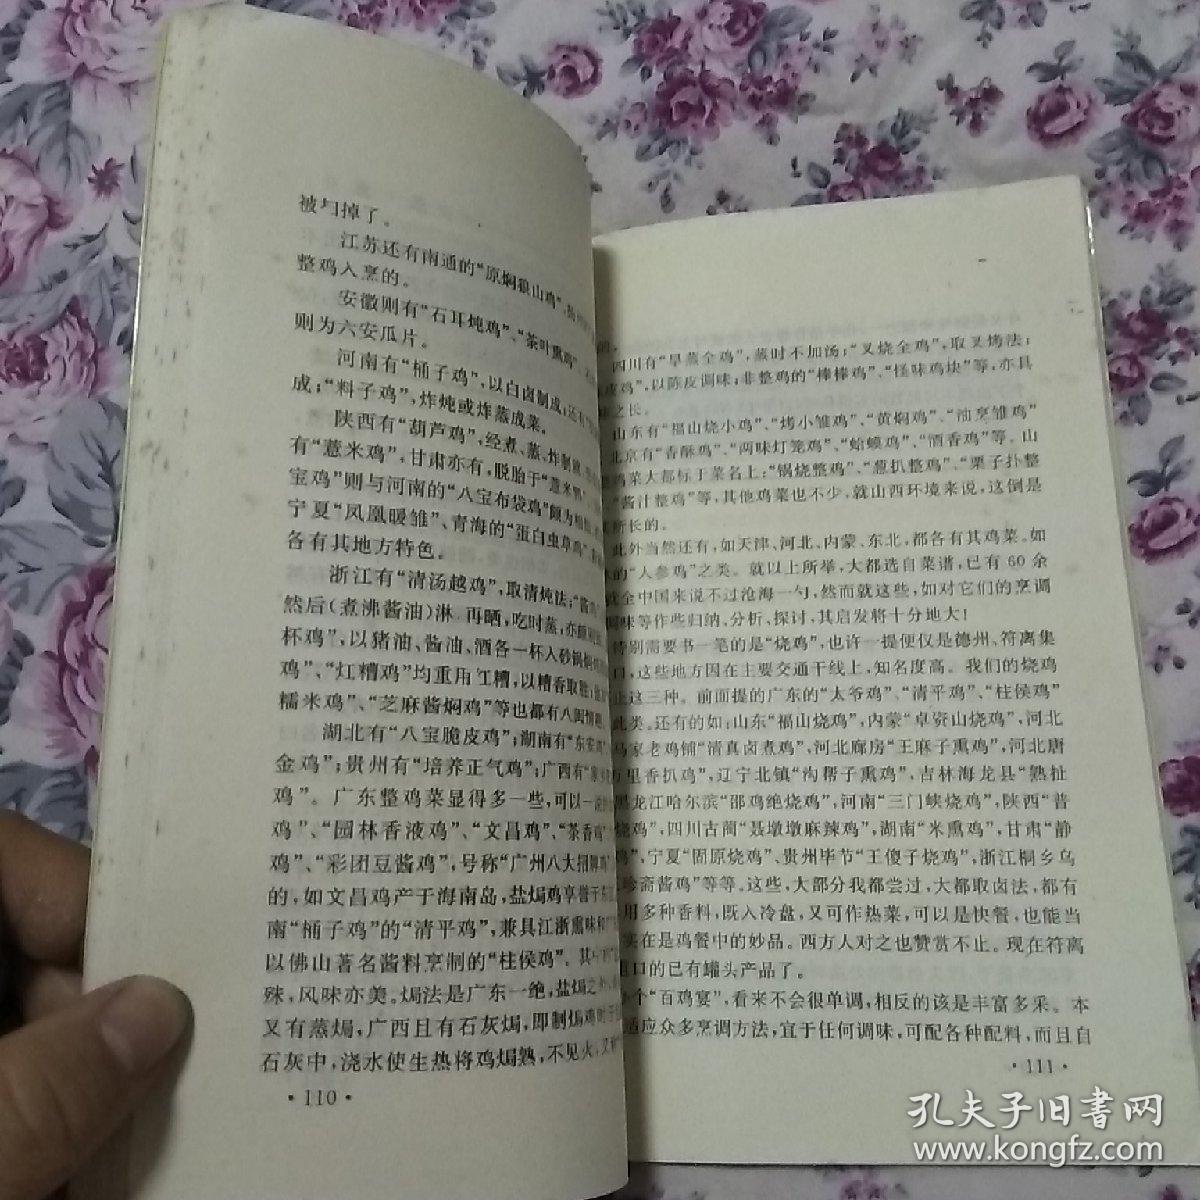 被扫掉了。
江苏还有南通的“原焖狼山鸡”,
整鸡入烹的。
安徽则有“石耳炖鸡”、“茶叶熏鸡”,
则为六安瓜片。
河南有“桶子鸡”,以白卤制成;还有
成;“料子鸡”,炸炖或炸蒸成菜。
陕西有“葫芦鸡”,经煮、蒸、炸制成
有“薏米鸡”,甘肃亦有,脱胎于“薏米鸭”
宝鸡”则与河南的“八宝布袋鸡”颇为相
宁夏“凤凰暖雏”、青海的“蛋白虫草鸡”
各有其地方特色。
浙江有“清汤越鸡”,取清炖法;“酱
然后(煮沸酱油)淋、再晒,吃时蒸,亦颇
杯鸡”,以猪油、酱油、酒各一杯入砂锅焖
鸡”、“㸆糟鸡”均重用红糟,以糟香取胜;
糯米鸡”、“芝麻酱焖鸡”等也都有八闽情
湖北有“八宝脆皮鸡”;湖南有“东安鸡
金鸡”;贵州有“培养正气鸡”;广西有“
鸡”。广东整鸡菜显得多一些,可以一
鸡”、“园林香液鸡”、“文昌鸡”、“茶香鸡
鸡”、“彩团豆酱鸡”,号称“广州八大招牌鸡
的,如文昌鸡产于海南岛,盐焗鸡享誉于东江
南“桶子鸡”的“清平鸡”,兼具江浙熏味和“
以佛山著名酱料烹制的“柱侯鸡”。其
殊,风味亦美。焗法是广东一绝,盐焗之
又有蒸焗,广西且有石灰焗,即制焗鸡时于
石灰中,浇水使生热将鸡焗熟,不见火,又
·110·
四川有“旱蒸全鸡”,蒸时不加汤;“叉烧全鸡”,取叉烤法;
皮鸡”,以陈皮调味;非整鸡的“棒棒鸡”、“怪味鸡块”等,亦具
味之长。
山东有“福山烧小鸡”、“烤小雏鸡”、“黄焖鸡”、“油烹雏鸡”
北京有“香酥鸡”、“两味灯笼鸡”、“蛤蟆鸡”、“酒香鸡”等。山
鸡菜大都标于菜名上:“锅烧整鸡”、“葱扒整鸡”、“栗子扑整
“酱汁整鸡”等,其他鸡菜也不少,就山西环境来说,这倒是
所长的。
此外当然还有,如天津、河北、内蒙、东北,都各有其鸡菜。如
的“人参鸡”之类。就以上所举,大都选自菜谱,已有60余
就全中国来说不过沧海一勺,然而就这些,如对它们的烹调
调味等作些归纳、分析、探讨,其启发将十分地大!
特别需要书一笔的是“烧鸡”,也许一提便仅是德州、符离集
口,这些地方因在主要交通干线上,知名度高。我们的烧鸡
止这三种。前面提的广东的“太爷鸡”、“清平鸡”、“柱侯鸡”
此类。还有的如:山东“福山烧鸡”,内蒙“卓资山烧鸡”,河北
马家老鸡铺“清真卤煮鸡”,河北廊房“王麻子熏鸡”,河北唐
万里香扒鸡”,辽宁北镇“沟帮子熏鸡”,吉林海龙县“熟扯
黑龙江哈尔滨“邵鸡绝烧鸡”,河南“三门峡烧鸡”,陕西“普
鸡”,四川古蔺“聂墩墩麻辣鸡”,湖南“米熏鸡”,甘肃“静
鸡”,宁夏“固原烧鸡”、贵州毕节“王傻子烧鸡”,浙江桐乡乌
珍斋酱鸡”等等。这些,大部分我都尝过,大都取卤法,都有
用多种香料,既入冷盘,又可作热菜,可以是快餐,也能当
实在是鸡餐中的妙品。西方人对之也赞赏不止。现在符离
口的已有罐头产品了。
个“百鸡宴”,看来不会很单调,相反的该是丰富多采。本
适应众多烹调方法,宜于任何调味,可配各种配料,而且自
·111·
孔夫子旧书网
www.kongfz.com